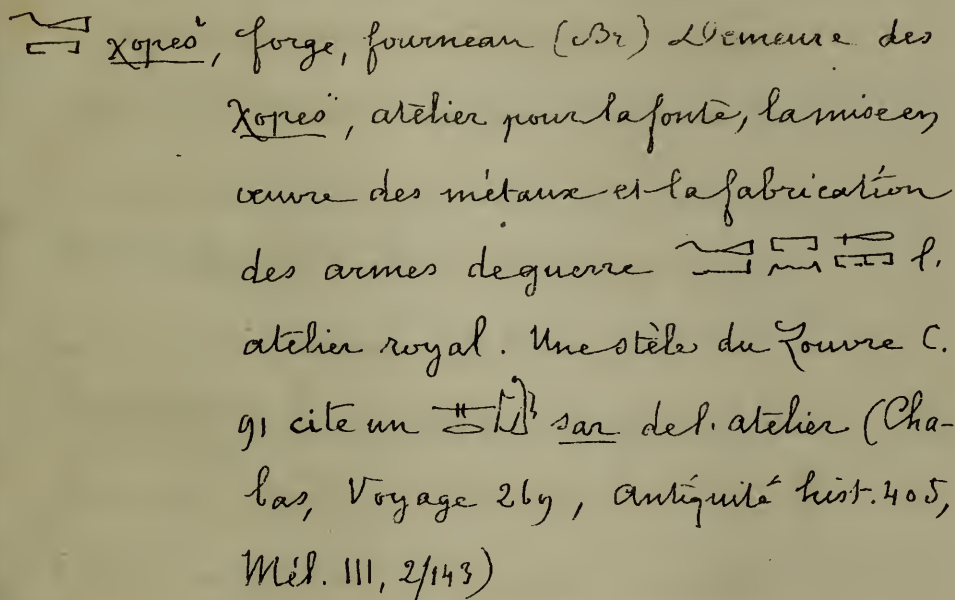 χopes̈, forge, fourneau (Br) Demeure des
χopes̈, atèlier pour la fonte, la mise en
œuvre des métaux et la fabrication
des armes de guerre l.
atèlier royal. Une stèle du Louvre C.
91 cite un sar de l. atèlier (Cha-
bas, Voyage 269, antiquité hist. 405,
Mél. III, 2/143)